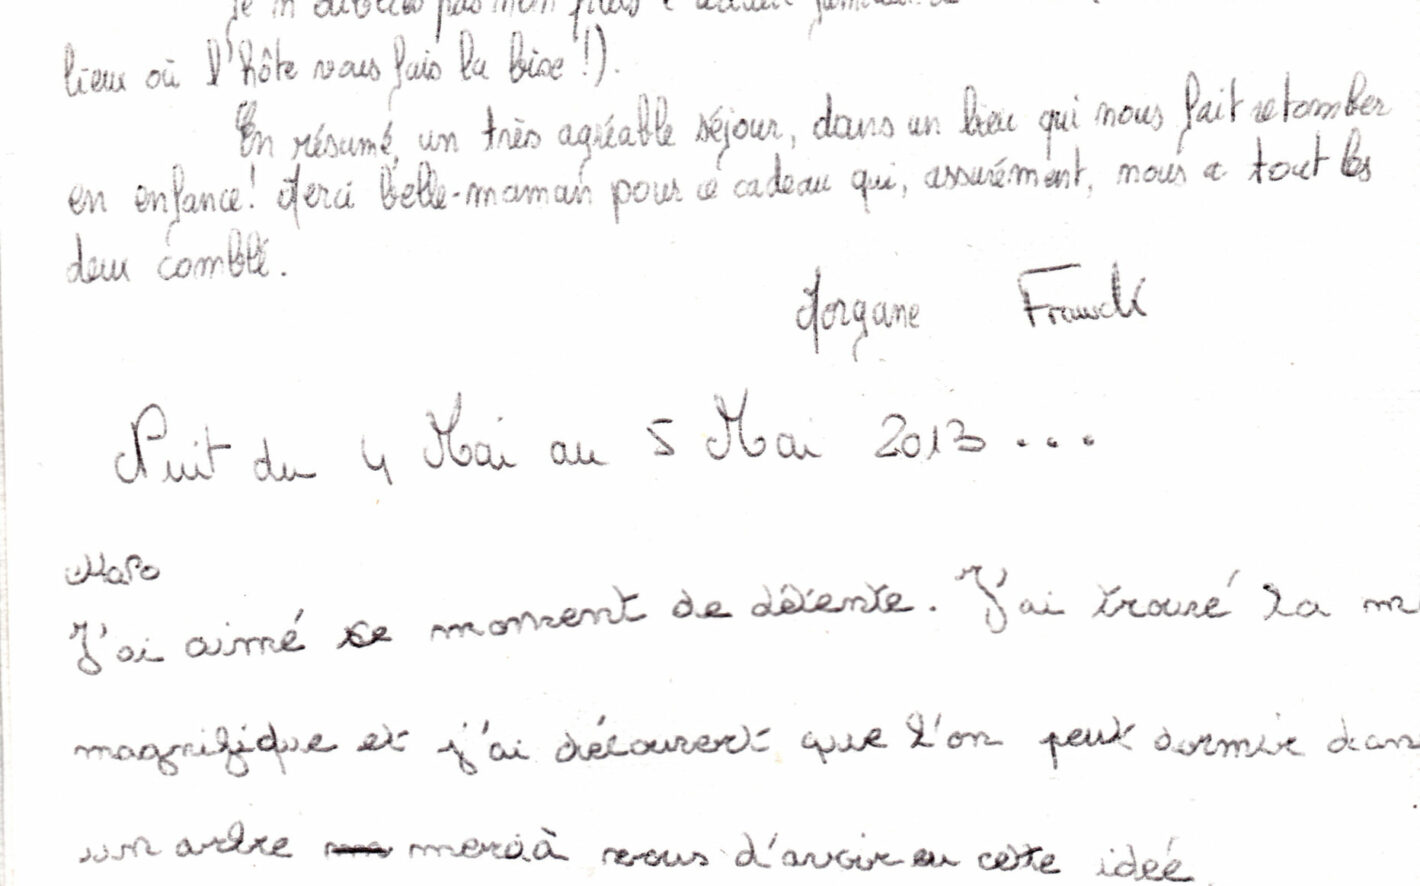 lieu où l'hôte vous fais la bise !).
En résumé, un très agréable séjour, dans un lieu qui nous fait retomber
en enfance! Merci belle-maman pour ce cadeau qui, assurément, nous a tout les
deux comblé.
Morgane Franck
Nuit du 4 Mai au 5 Mai 2013...
J'ai aimé ce moment de détente. J'ai trouvé la
magnifique et j'ai découvert que l'on peut dormir dans
un arbre merci à vous d'avoir eu cette idée